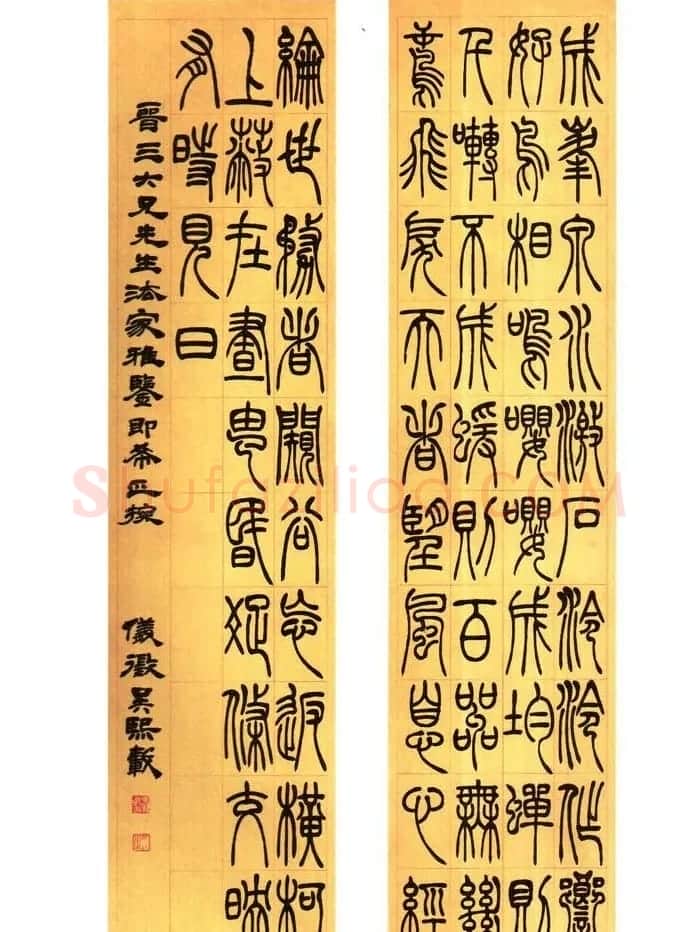 成峯泉水激石泠泠作響
好鳥相鳴嚶嚶成均蟬則
千囀不成蝯則百嘂無絕
鳶飛戾天者望風息心經
綸世務者闚谷忘返橫柯
上蔽在晝昏疏條交映
有時見日
晉三大兄先生法家雅鑒即希正捥
儀徵吳熙載
Shufaziliao.COM